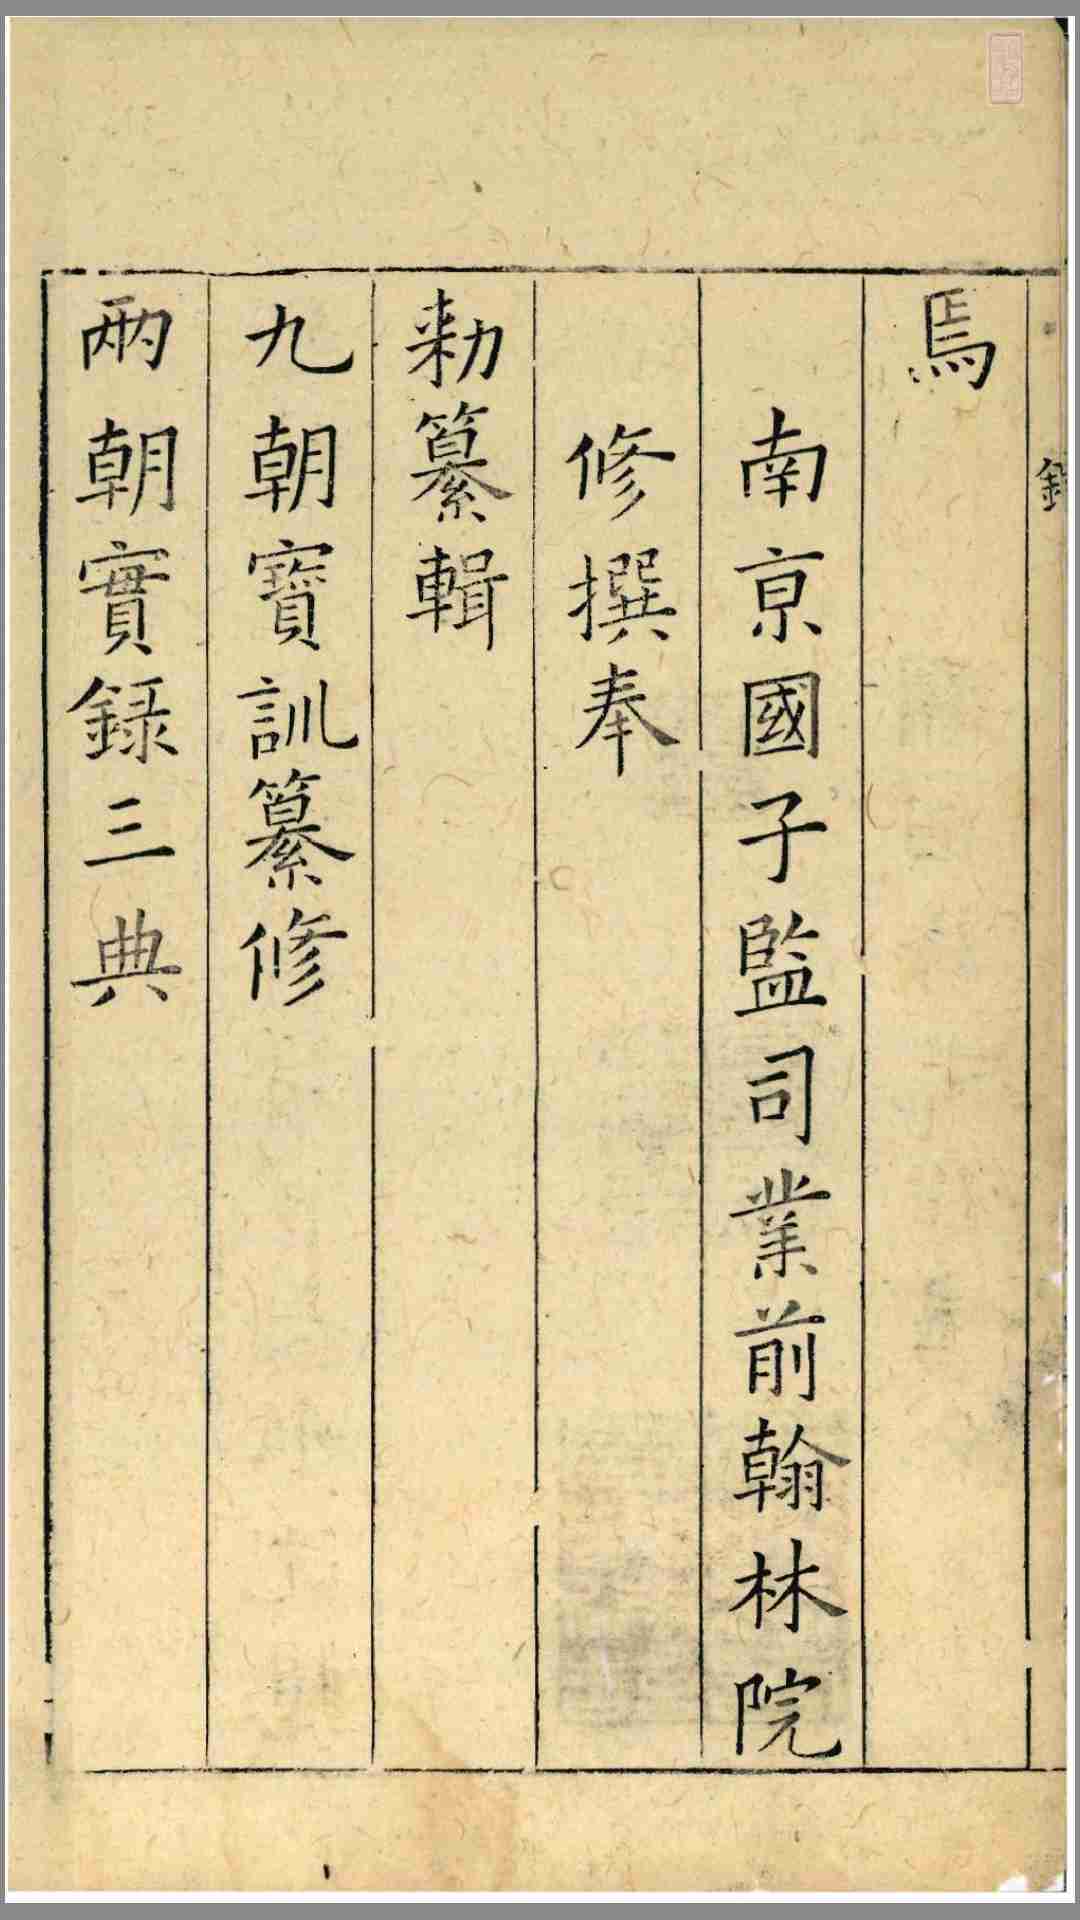 焉
南京國子監司業前翰林院
修撰奉
勑纂輯
九朝寶訓纂修
兩朝實録三典